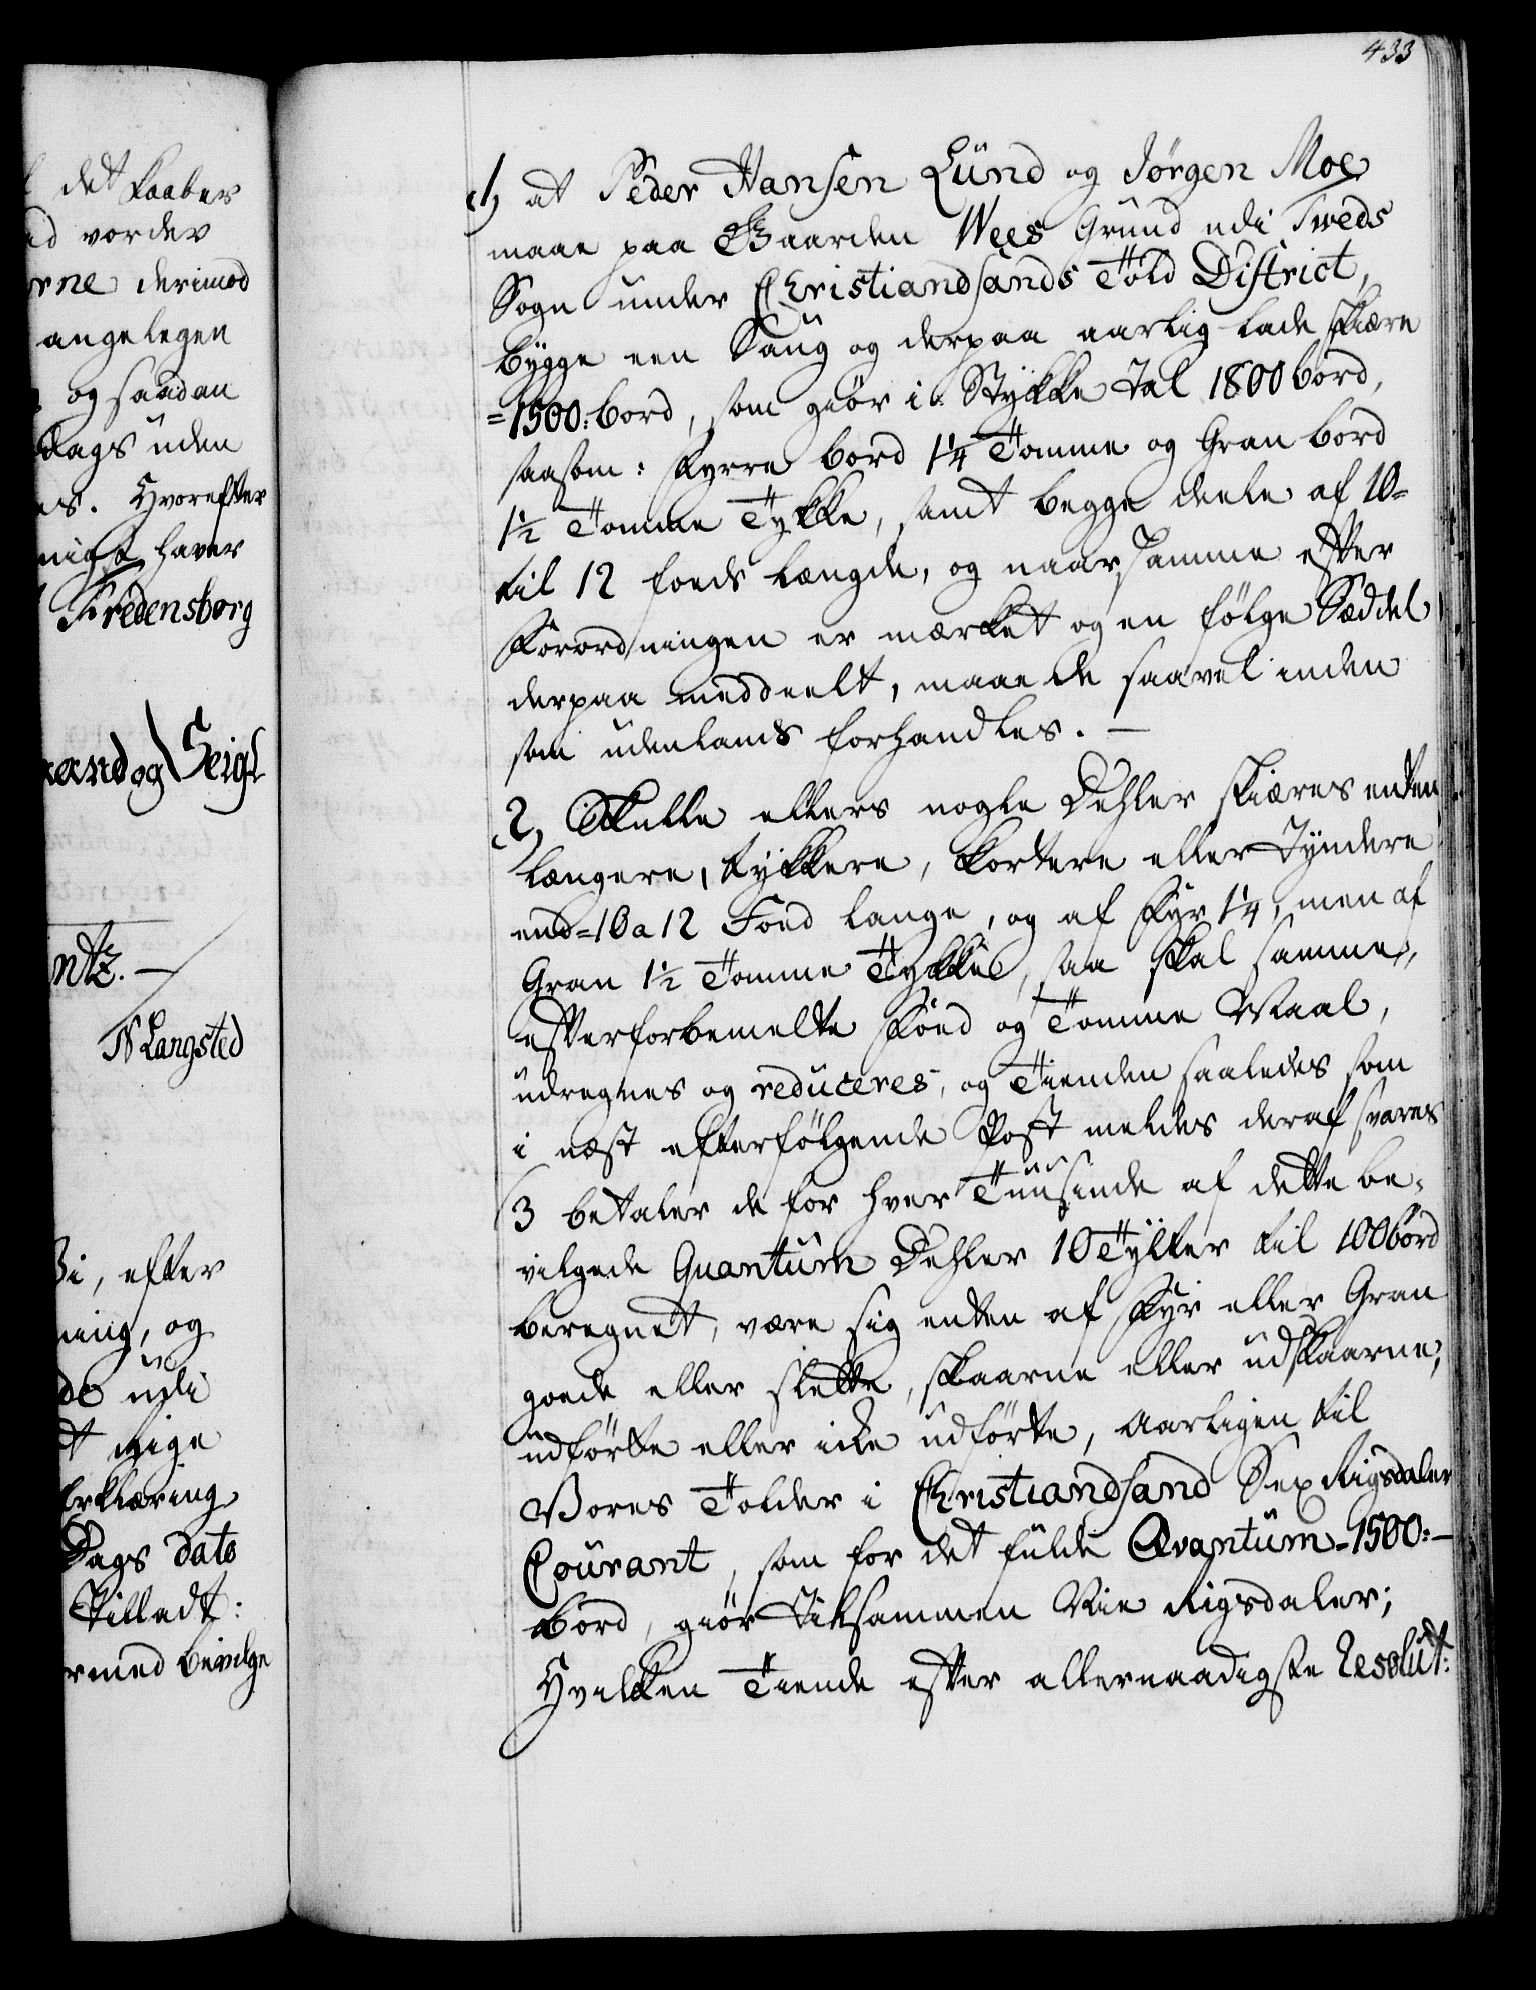 433
det Kaaber
vorder
derimod
angelegen
og saadan
dags uden
Hvorefter
haver
Fredensborg
og Seigl
N Langsted
efter
og
udi
Rige
Erklæring
Dags dato
Tilladt:
bevilge
1, at Peder Hansen Lund og Jørgen Moe
maae paa Gaarden Wees Grund udi Tweds
Sogn under Christiandsands Told District,
bygge een Saug og derpaa aarlig lade skiære
=1500: bord, som giør i Stykke Tal 1800 bord,
saasom: Fyrre bord 1¼ Tomme og Gran bord
1½ Tomme Tykke, samt begge deele af 10=
til 12 foeds Længde, og naar samme efter
Forordningen er mærket og en følge Sæddel
derpaa meddeelt, maae de saavel inden
som udenlands forhandles. —
2, Skulle ellers nogle Dehler skiæres enten
længere, tykkere, kortere eller Tyndere
end =10 a 12 Foed lange, og af Fyr 1¼, men af
Gran 1½ Tomme Tykke, saa skal samme,
efter forbemelte Foed og Tomme Maal,
udregnes og reduceres, og Tienden saaledes som
i næst efterfølgende Post meldes deraf svares
3 betaler de for hver Tuusinde af dette be=
vilgede Quantum Dehler 10 Tylter til 100 bord
beregnet, være sig enten af Fyr eller Gran
goede eller slette, skaarne eller udskaarne,
udførte eller icke udførte, aarligen til
Vores Tolder i Christiandsand Sex Rigsdaler
Courant, som for det fulde Qvantum =1500:—
bord, giør Tilsammen Nie Rigsdaler;
Hvilken Tiende efter allernaadigste Resolut: